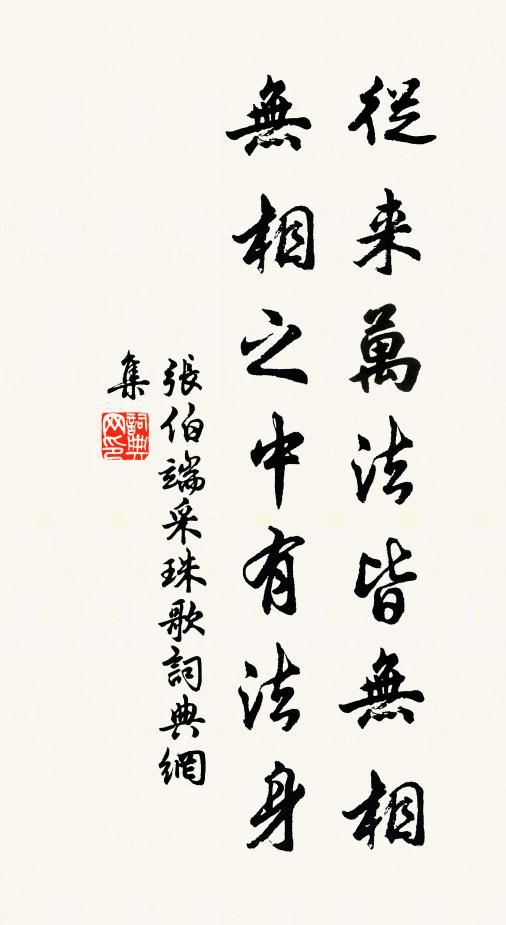 從来萬法皆無相
無相之中有法身
張伯端采珠歌詞典網
集
詞典
网印